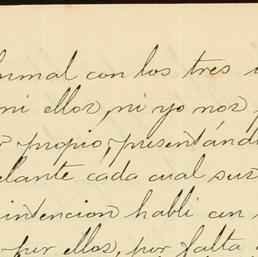 ormal con los tres
ni ellos, ni yo nos
propio, presentándo
elante cada cual sus
intencion hablé con
per ellos, por falta